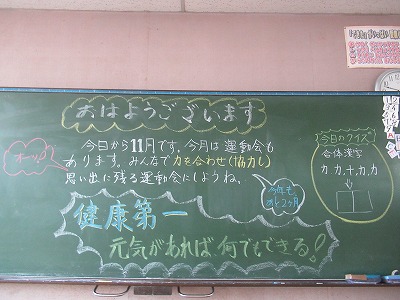 おはようございます
今日から11月です。今月は運動会も
あります。みんなで力を合わせ(協力し)
思い出に残る運動会にしようね。
今年も
あと2ヶ月
健康第一
元気があれば、何でもできる!
今日のクイズ
合体漢字
力、力、十、力、力